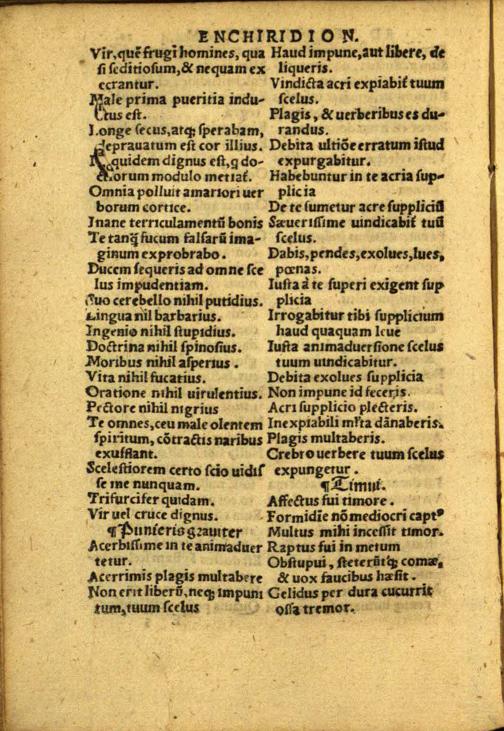 ENCHIRIDION.
Vir, quē frugi homines, qua
si seditiosum, & nequam ex
ecrantur.
Male prima pueritia indu-
ctus est.
Longe secus, atq; sperabam,
deprauatum est cor illius.
quidem dignus est, q do-
lorum modulo metiat᷑.
Omnia polluit amariori uer
borum cortice.
Inane terriculamentū bonis
Te tanq̄ fucum falsarū ima-
ginum exprobrabo.
Ducem sequeris ad omne sce
lus impudentiam.
Suo cerebello nihil putidius.
Lingua nil barbarius.
Ingenio nihil stupidius.
Doctrina nihil spinosius.
Moribus nihil asperius.
Vita nihil fucatius.
Oratione nihil uirulentius.
Pectore nihil nigrius
Te omnes, ceu male olentem
spiritum, cōtractis naribus
exufflant.
Scelestiorem certo scio uidis
se me nunquam.
Trifurcifer quidam.
Vir uel cruce dignus.
¶ Punieris grauiter
Acerbissime in te animaduer
tetur.
Acerrimis plagis multabere
Non erit liberū, neq; impuni
tum, tuum scelus
Haud impune, aut libere, de
liqueris.
Vindicta acri expiabit᷑ tuum
scelus.
Plagis, & uerberibus es du-
randus.
Debita ultiōe erratum istud
expurgabitur.
Habebuntur in te acria sup-
plicia
De te sumetur acre suppliciū
Sæuerissime uindicabit᷑ tuū
scelus.
Dabis, pendes, exolues, lues,
pœnas.
Iusta à te superi exigent sup
plicia
Irrogabitur tibi supplicium
haud quaquam leue
Iusta animaduersione scelus
tuum uindicabitur.
Debita exolues supplicia
Non impune id feceris.
Acri supplicio plecteris.
Inexpiabili mr̄ta dānaberis.
Plagis multaberis.
Crebro uerbere tuum scelus
expungetur.
¶ Timui.
Affectus fui timore.
Formidīe nō mediocri captꝰ
Multus mihi incessit timor.
Raptus fui in metum
Obstupui, steterūtq; comæ,
& uox faucibus hæsit.
Gelidus per dura cucurrit
ossa tremor.